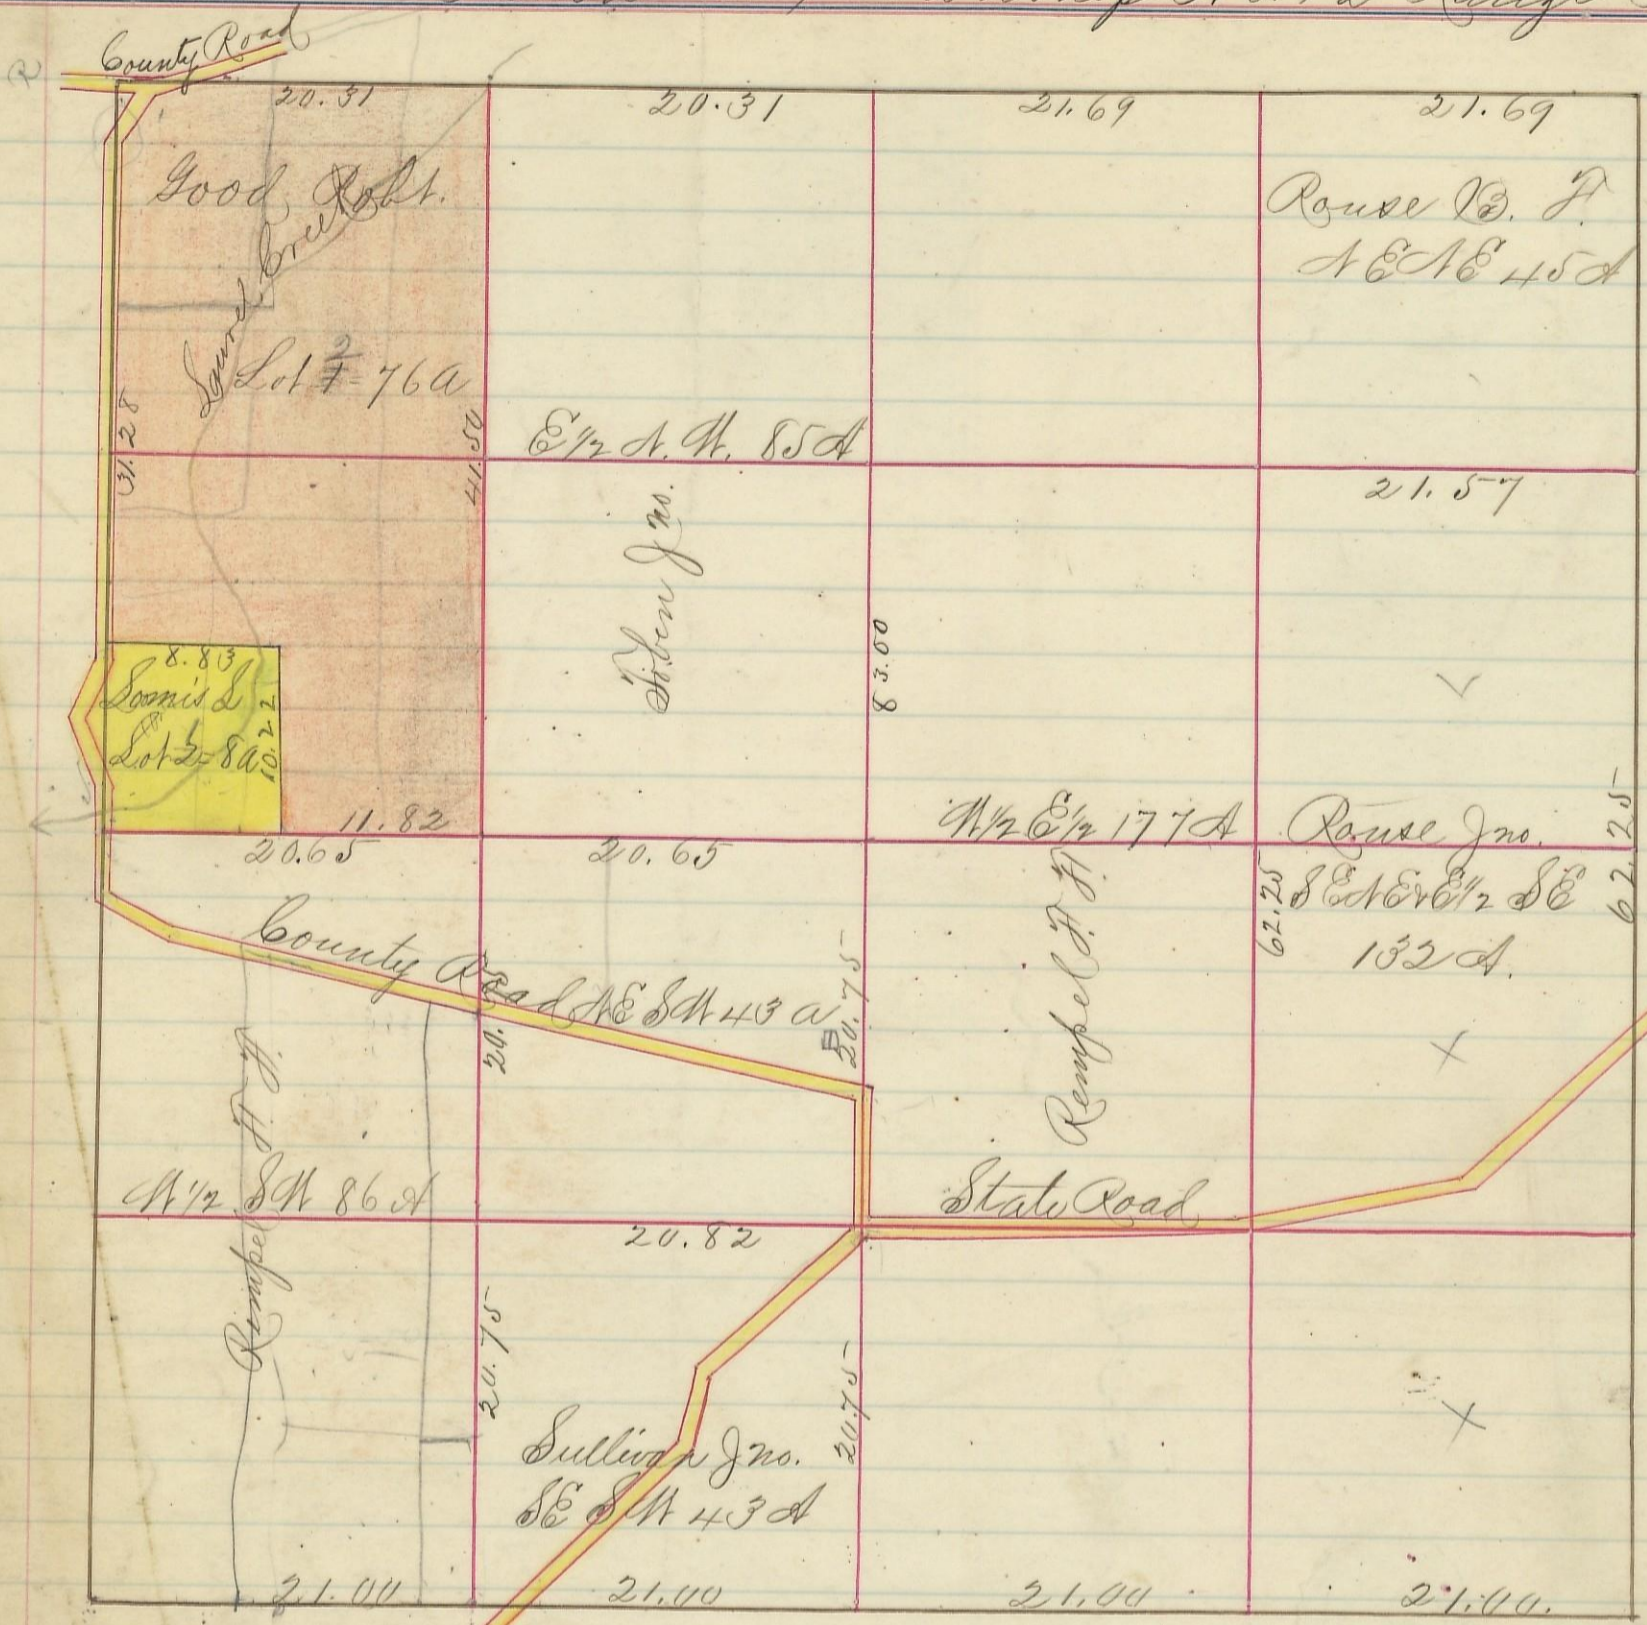 County Road
20.31
20.31
21.69
21.69
Good Robt.
Laurel Creek
Lot 2 = 76 a
31.28
41.50
Rouse B. F.
N E N E 45 A
E ½ N. W. 85 A
21.57
Toben Jno.
83.00
8.83
Loomis L
Lot 1 = 8 a
10.22
11.82
20.65
20.65
W ½ E ½ 177 A
Rouse Jno.
S E N E & E ½ S E
132 A.
62.25
62.25
County Road
N E S W 43 a
20.75
20.
Rempel F. F.
W ½ S W 86 A
Rempel F. F.
State Road
20.82
20.75
20.75
Sullivan Jno.
S E S W 43 A
21.00
21.00
21.00
21.00.